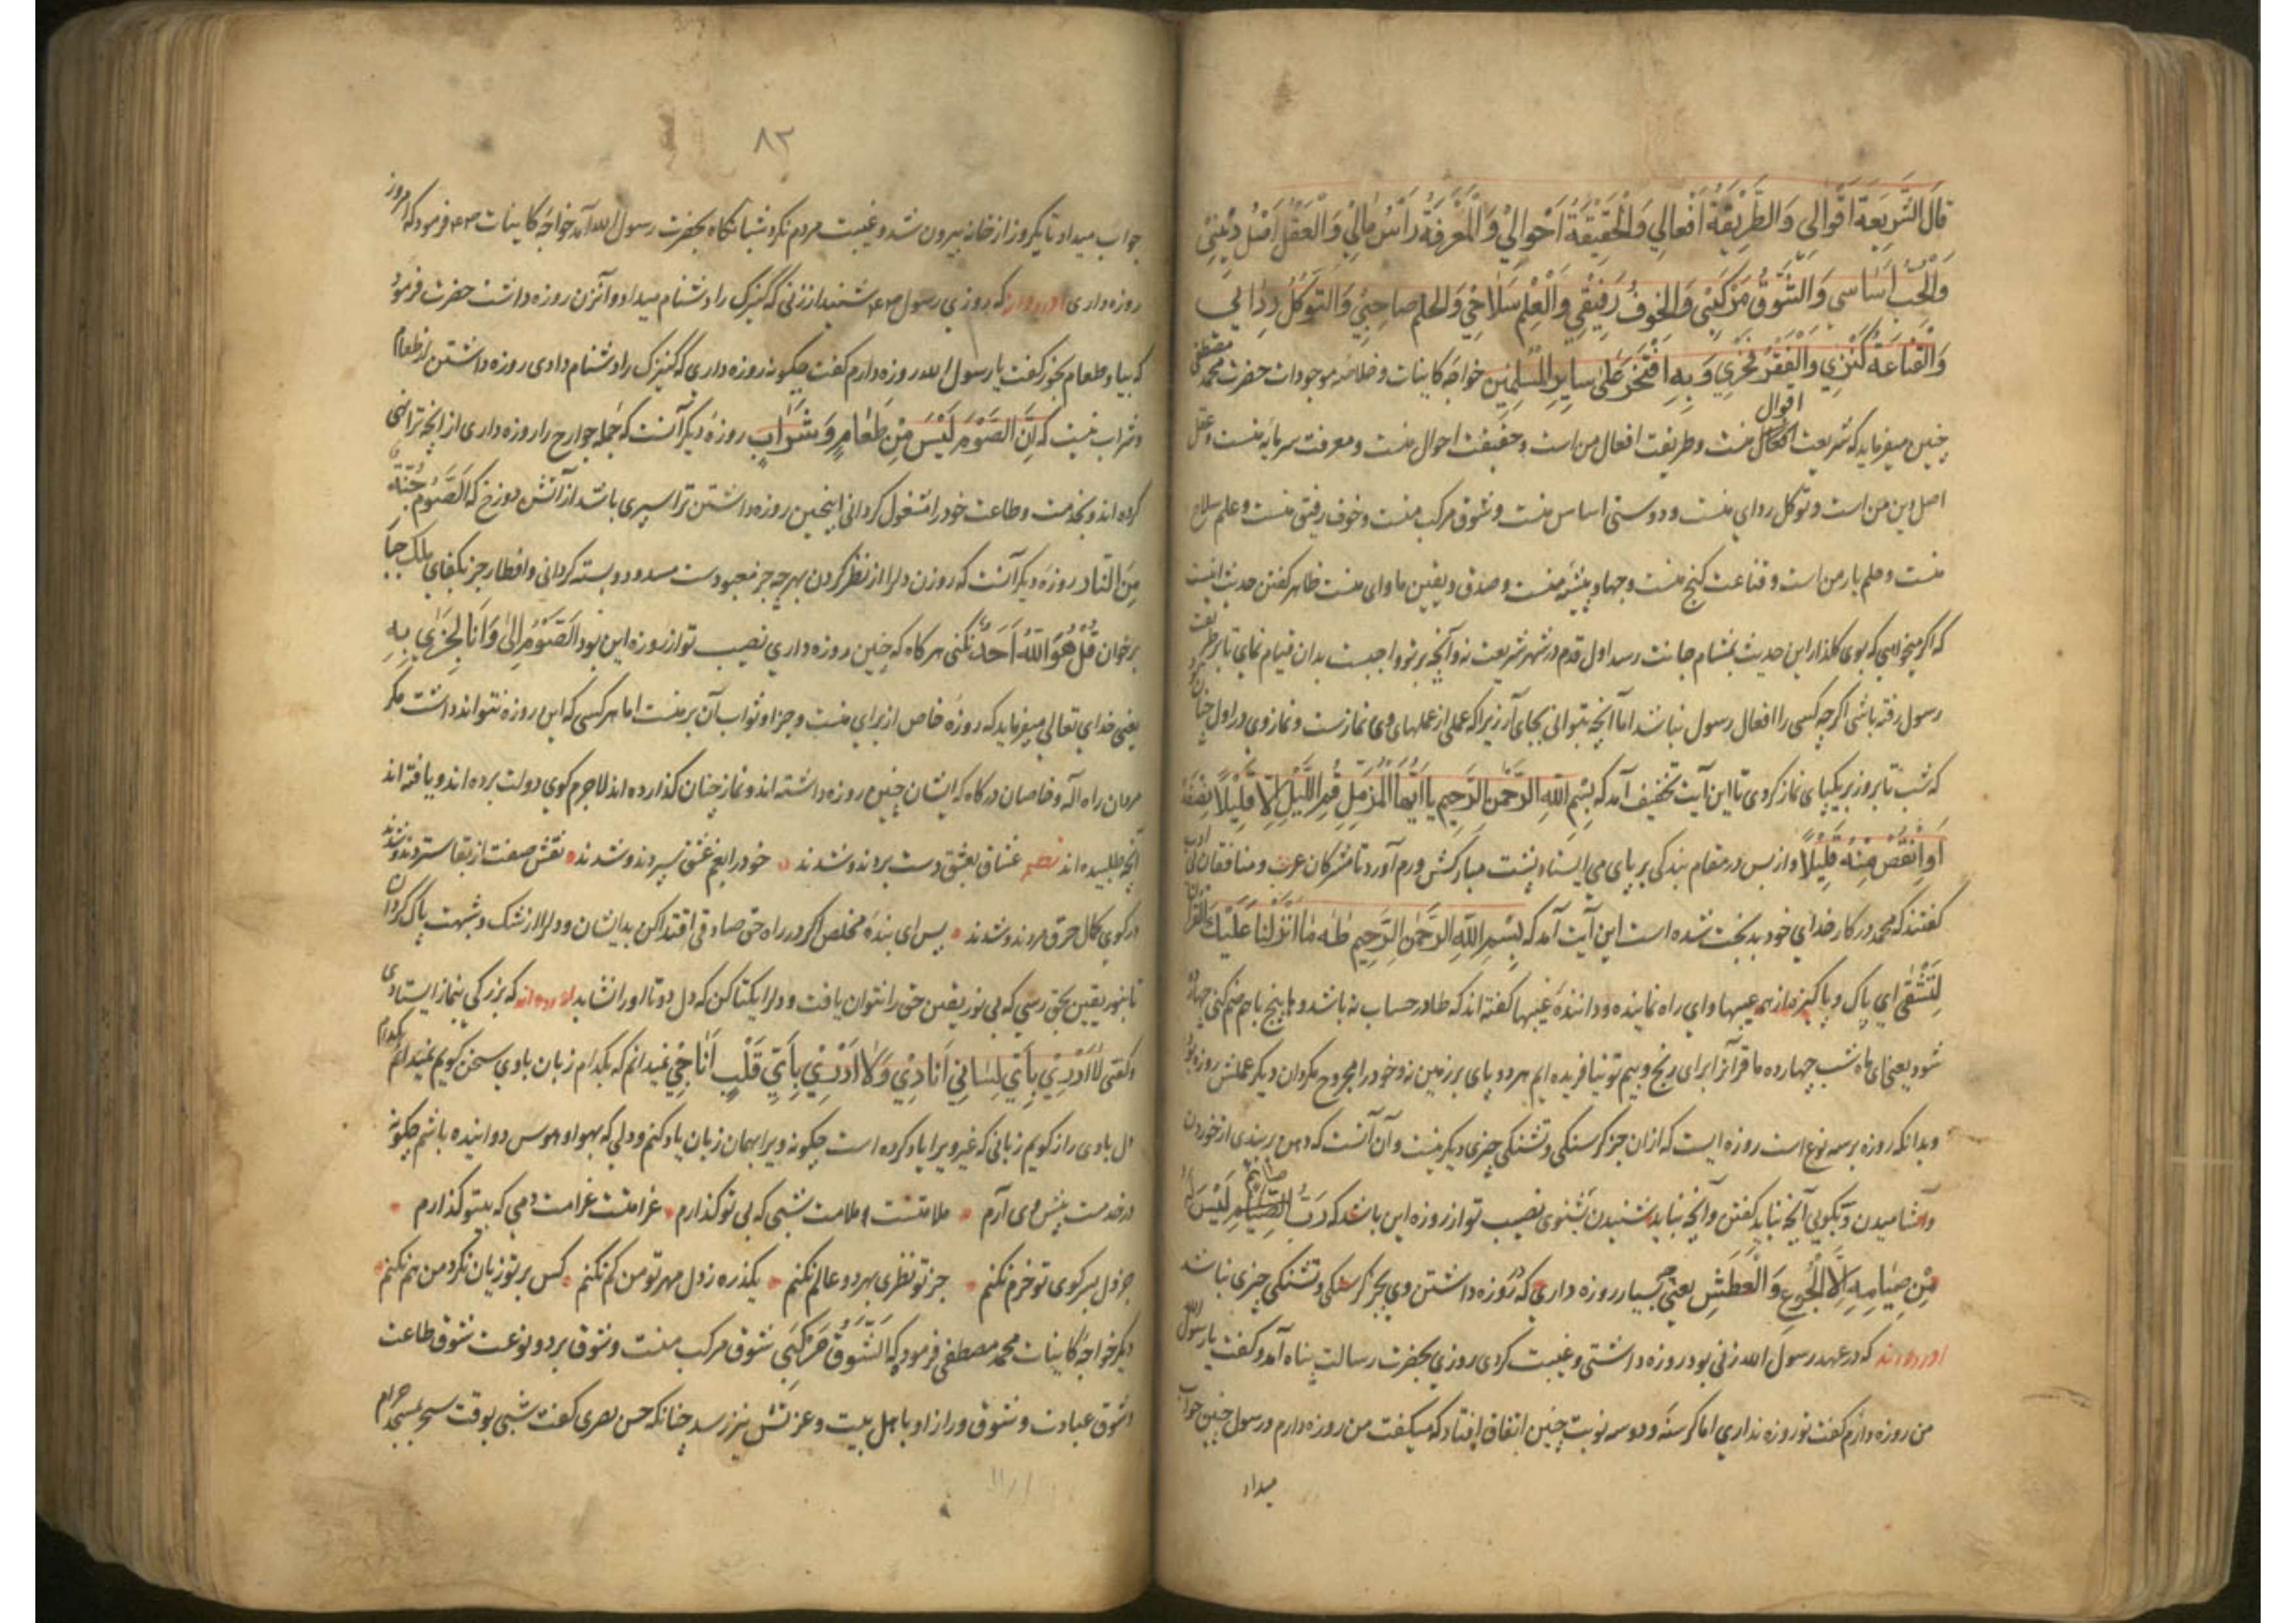 قَالَ الشَّرِيعَةُ اَقْوَالِي وَالطَّرِيْقَةُ اَفْعَالِي وَالْحَقِيْقَةُ اَحْوَالِيْ وَالْمَعْرِفَةُ رَأْسُ مَالِيْ وَالْعَقْلُ اَصْلُ دِيْنِيْ
وَالْحُبُّ اَسَاسِي وَالشَّوْقُ مَرْكَبِيْ وَالْخَوفُ رَفِيْقِيْ وَالْعِلْمُ سَلَاحِيْ وَالحلم صَاحِبِيْ وَالتَوَكُلُ رِدَائِي
وَالْقَنَاعَةُ كَنْزِي وَالْفَقْرُ فَخْرِي وَبِهِ اَفْتَخِرُ عَلَى سَايِرِ الْمُسْلِمِيْنِ خواجه کاینات وخلاصه موجودات حضرت محمد مصطفی
چنین میفرماید که شریعت اقوال منست وطریقت افعال من است وحقیقت احوال منست ومعرفت سرمایه منست وعقل
اصل دین من است وتوکل ردای منست ودوستی اساس منست وشوق مرکب منست وخوف رفیق منست وعلم سلاح
منست وحلم یار من است وقناعت کنج منست وجهاد پیشه منست وصدق ویقین ماوای منست ظاهر کفتن حدیث اینست
که اکر میخواهی که بوی کلذار این حدیث بمشام جانت رسد اول قدم در شهر شریعت نه وآنچه بر تو واجبست بدان قیام نمای تا بر طریقت
رسول رفته باشی اکرچه کسی را افعال رسول نباشد اما آنچه بتوانی بجای آر زیراکه عملی از عملهای وی نمازست ونماز وی در اول چنان بود
که شب تا بروز بر یکپای نماز کردی تا این آیت تخفیف آمد که بِسْمِ اللهِ الرَّحْمنِ الرَّحِيمِ يَا اَيُّهَا الْمُزَّمِّلُ قُمِ اللَّيْلَ اِلَّا قَلِيْلاً نِصْفَهُ
اَوِ انْقُصْ مِنْهُ قَلِيْلاً واز بس در مقام بندکی بر پای می ایستاد پشت مبارکش ورم آورد تا مشرکان عرب ومنافقان بی ادب
کفتند که محمد در کار خدای خود بدبخت شده است این آیت آمد که بِسْمِ اللهِ الرَّحْمنِ الرَّحِيمِ طه مَا اَنْزَلْنَا عَلَيْكَ الْقُرْآنَ
لِتَشْقَى ای پاک وپاکیزه از همه عیبها وای راه نماینده وداننده غیبها کفته اند که طا در حساب نه باشد وها پنج باهم ضم کنی چهارده
شود یعنی ای ماه شب چهارده ما قرآنرا برای رنج وبیم تو نیافریده ایم هر دو پای بر زمین نه وخود را مجروح مکردان ودیکر عملش روزه بود
وبدانکه روزه بر سه نوع است روزه ایست که از ان جز کرسنکی وتشنکی چیزی دیکر نیست وآن آنست که دهن بر بندی از خوردن
وآشامیدن وبکویی آنچه نباید کفتن وآنچه نباید شنیدن بشنوی نصیب تو از روزه این باشد که رُبَّ صائم لَيْسَ لَهُ
مِنْ صِيَامِهِ اِلَّا الْجُوعِ وَالْعَطَشِ یعنی بسیار روزه داری که در روزه داشتن وی بجز کرسنکی وتشنکی چیزی نباشد
آورده اند که در عهد رسول الله زنی بود روزه داشتی وغیبت کردی روزی بحضرت رسالت پناه آمد وکفت یا رسول الله
من روزه دارم کفت تو روزه نداری اما کرسنه ودوسه نوبت چنین اتفاق افتاد که میکفت من روزه دارم ورسول چنین جواب
میداد
۸۲
جواب میداد تا یکروز از خانه بیرون نشد وغیبت مردم نکرد شبانکاه بحضرت رسول الله آمد خواجه کاینات فرمود که امروز
روزه داری آورده اند که روزی رسول شنید از زنی که کنیزک را دشنام میداد وآن زن روزه داشت حضرت فرمود
که بیا وطعام بخور کفت یا رسول الله روزه دارم کفت چکونه روزه داری که کنیزک را دشنام دادی روزه داشتن از طعام
وشراب نیست که اِنَّ الصَّوْمَ لَيْسَ مِنْ طَعَامٍ وَشَرَابٍ روزه دیکر آنست که جمله جوارح را روزه داری از انچه ترا نهی
کرده اند وبخدمت وطاعت خود را مشغول کردانی اینچنین روزه داشتن ترا سپری باشد از آتش دوزخ که اَلصَّوْمُ جُنَّةٌ
مِنَ النَّارِ روزه دیکر آنست که روزن دلرا از نظر کردن بهرچه جز معبودست مسدود وبسته کردانی وافطار جز بلقای ملک جبار
برخوان قُلْ هُوَ اللهُ اَحَدٌ نکنی هرکاه که چنین روزه داری نصیب تو از روزه این بود اَلصَّوْمُ لِي وَاَنَا اَجْزِي بِهِ
یعنی خدای تعالی میفرماید که روزه خاص از برای منست وجزا وثواب آن بر منست اما هر کسی که این روزه نتواند داشت مکر
مردان راه اله وخاصان درکاه که ایشان چنین روزه داشته اند ونماز چنان کذارده اند لاجرم کوی دولت برده اند ویافته اند
آنچه طلبیده اند نظم عشاق بعشق دست بردند وشدند خود را بغم عشق سپردند وشدند نقش صفت از بقا ستردند وشدند
در کوی کمال حرق مردند وشدند پس ای بنده مخلص اکر در راه حق صادقی اقتدا کن بدیشان ودلرا از شک وشبهت پاک کردان
تا بنور یقین بحق رسی که بی نور یقین حق را نتوان یافت ودلرا یکتا کن که دل دوتا اورا نشاید آورده اند که بزرکی بنماز ایستادی
وکفتی لَا اَدْرِيْ بِاَيِّ لِسَانِيْ اُنَادِيْ وَلَا اَدْرِيْ بِاَيِّ قَلْبٍ اُنَاجِيْ نمیدانم که بکدام زبان باوی سخن کویم نمیدانم بکدام
دل باوی راز کویم زبانی که غیر ویرا یاد کرده است چکونه ویرا بهمان زبان یاد کنم ودلی که بهوا وهوس دوانیده باشم چکونه
در خدمت پیش وی آرم ملامتست ملامت شبی که بی تو کذارم غرامتست غرامت دمی که بیتو کذارم
جز دل بسر کوی تو خرم نکنم جز تو نظری بهر دو عالم نکنم یکذره ز دل مهر تو من کم نکنم کس بر تو زیان نکرد من هم نکنم
دیکر خواجه کاینات محمد مصطفی فرمود که اَلشَّوْقُ مَرْكَبِي شوق مرکب منست وشوق بر دو نوعست شوق طاعت
وشوق عبادت وشوق وراز او با اهل بیت وعزتش نیز رسد چنانکه حسن بصری کفت شبی بوقت سحر بمسجد حرام